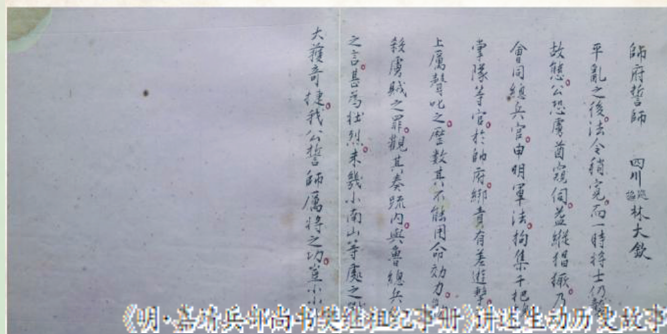 師府誓師 四川 林大欽
平亂之後。法令稍寬。而一時將士仍襲
故態。公恐虜酋窺伺。益縱猖獗。乃
會同總兵官。申明軍法。拘集千把
掌隊等官。於帥府綁責。有差遊擊
上厲聲叱之。歷數其不能用命效力。
殺虜賊之罪。觀其奏疏內。與魯總兵
之言。甚為壯烈。未幾小南山等處之
大獲奇捷。我公誓師厲將之功。豈小
《明·嘉靖兵部尚书樊继祖纪事册》讲述生动历史故事